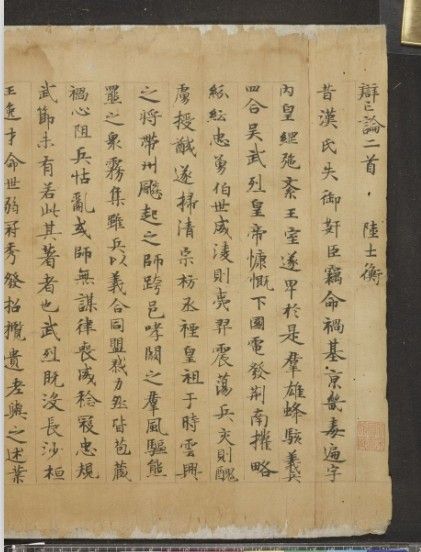 辯亡論二首 陸士衡
昔漢氏失御奸臣竊命禍基京畿毒遍宇
內皇綱弛紊王室遂卑於是羣雄蜂駭義兵
四合吳武烈皇帝慷慨下國電發荊南權略
紛紜忠勇伯世威淩則夷羿震蕩兵交則醜
虜授馘遂掃清宗枋丞禋皇祖于時雲興
之將帶州飈起之師跨邑哮闞之羣風驅熊
羆之衆霧集雖兵以義合同盟戮力然皆苞藏
禍心阻兵怙亂或師無謀律喪威稔寇忠規
武節未有若此其著者也武烈既沒長沙桓
王逸才命世弱冠秀發招攬貴老與之述業